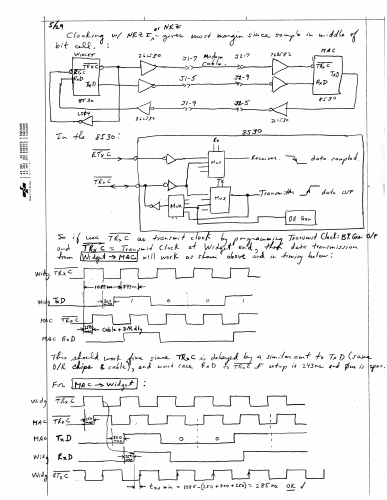 5/29
or NRZ
Clocking w/ NRZI - gives most margin since sample in middle of
bit cell:
WIDGET
26LS30
J1-7
Modem
Cable
J2-7
26LS32
MAC
TRxC
RTxC
RxD
TxD
J1-5
J2-9
TRxC
TxD
RxD
8530
J1-9
J2-5
8530
26LS30
In the 8530:
8530
Rx
RTxC
Mux
Receiver
data sampled
TRxC
Tx
Mux
Mux
Transmitter
data O/P
BR Gen
So if use TRxC as transmit clock by programming Transmit Clock = BR Gen O/P
and TRxC = Transmit Clock at Widget end, then data transmission
from Widget → MAC will work as shown above and in timing below:
Widg TRxC
Widg TxD
1 0 0 1
MAC TRxC
Cable + D/R dly
MAC RxD
This should work fine since TRxC is delayed by a similar amt to TxD (same
D/R chips & cable), and worst case RxD to TRxC setup is 243ns and 0ns is spec.
For MAC → Widget :
Widg TRxC
MAC TRxC
MAC TxD
0 0
Widg RxD
Widg RTxC
OK ✓